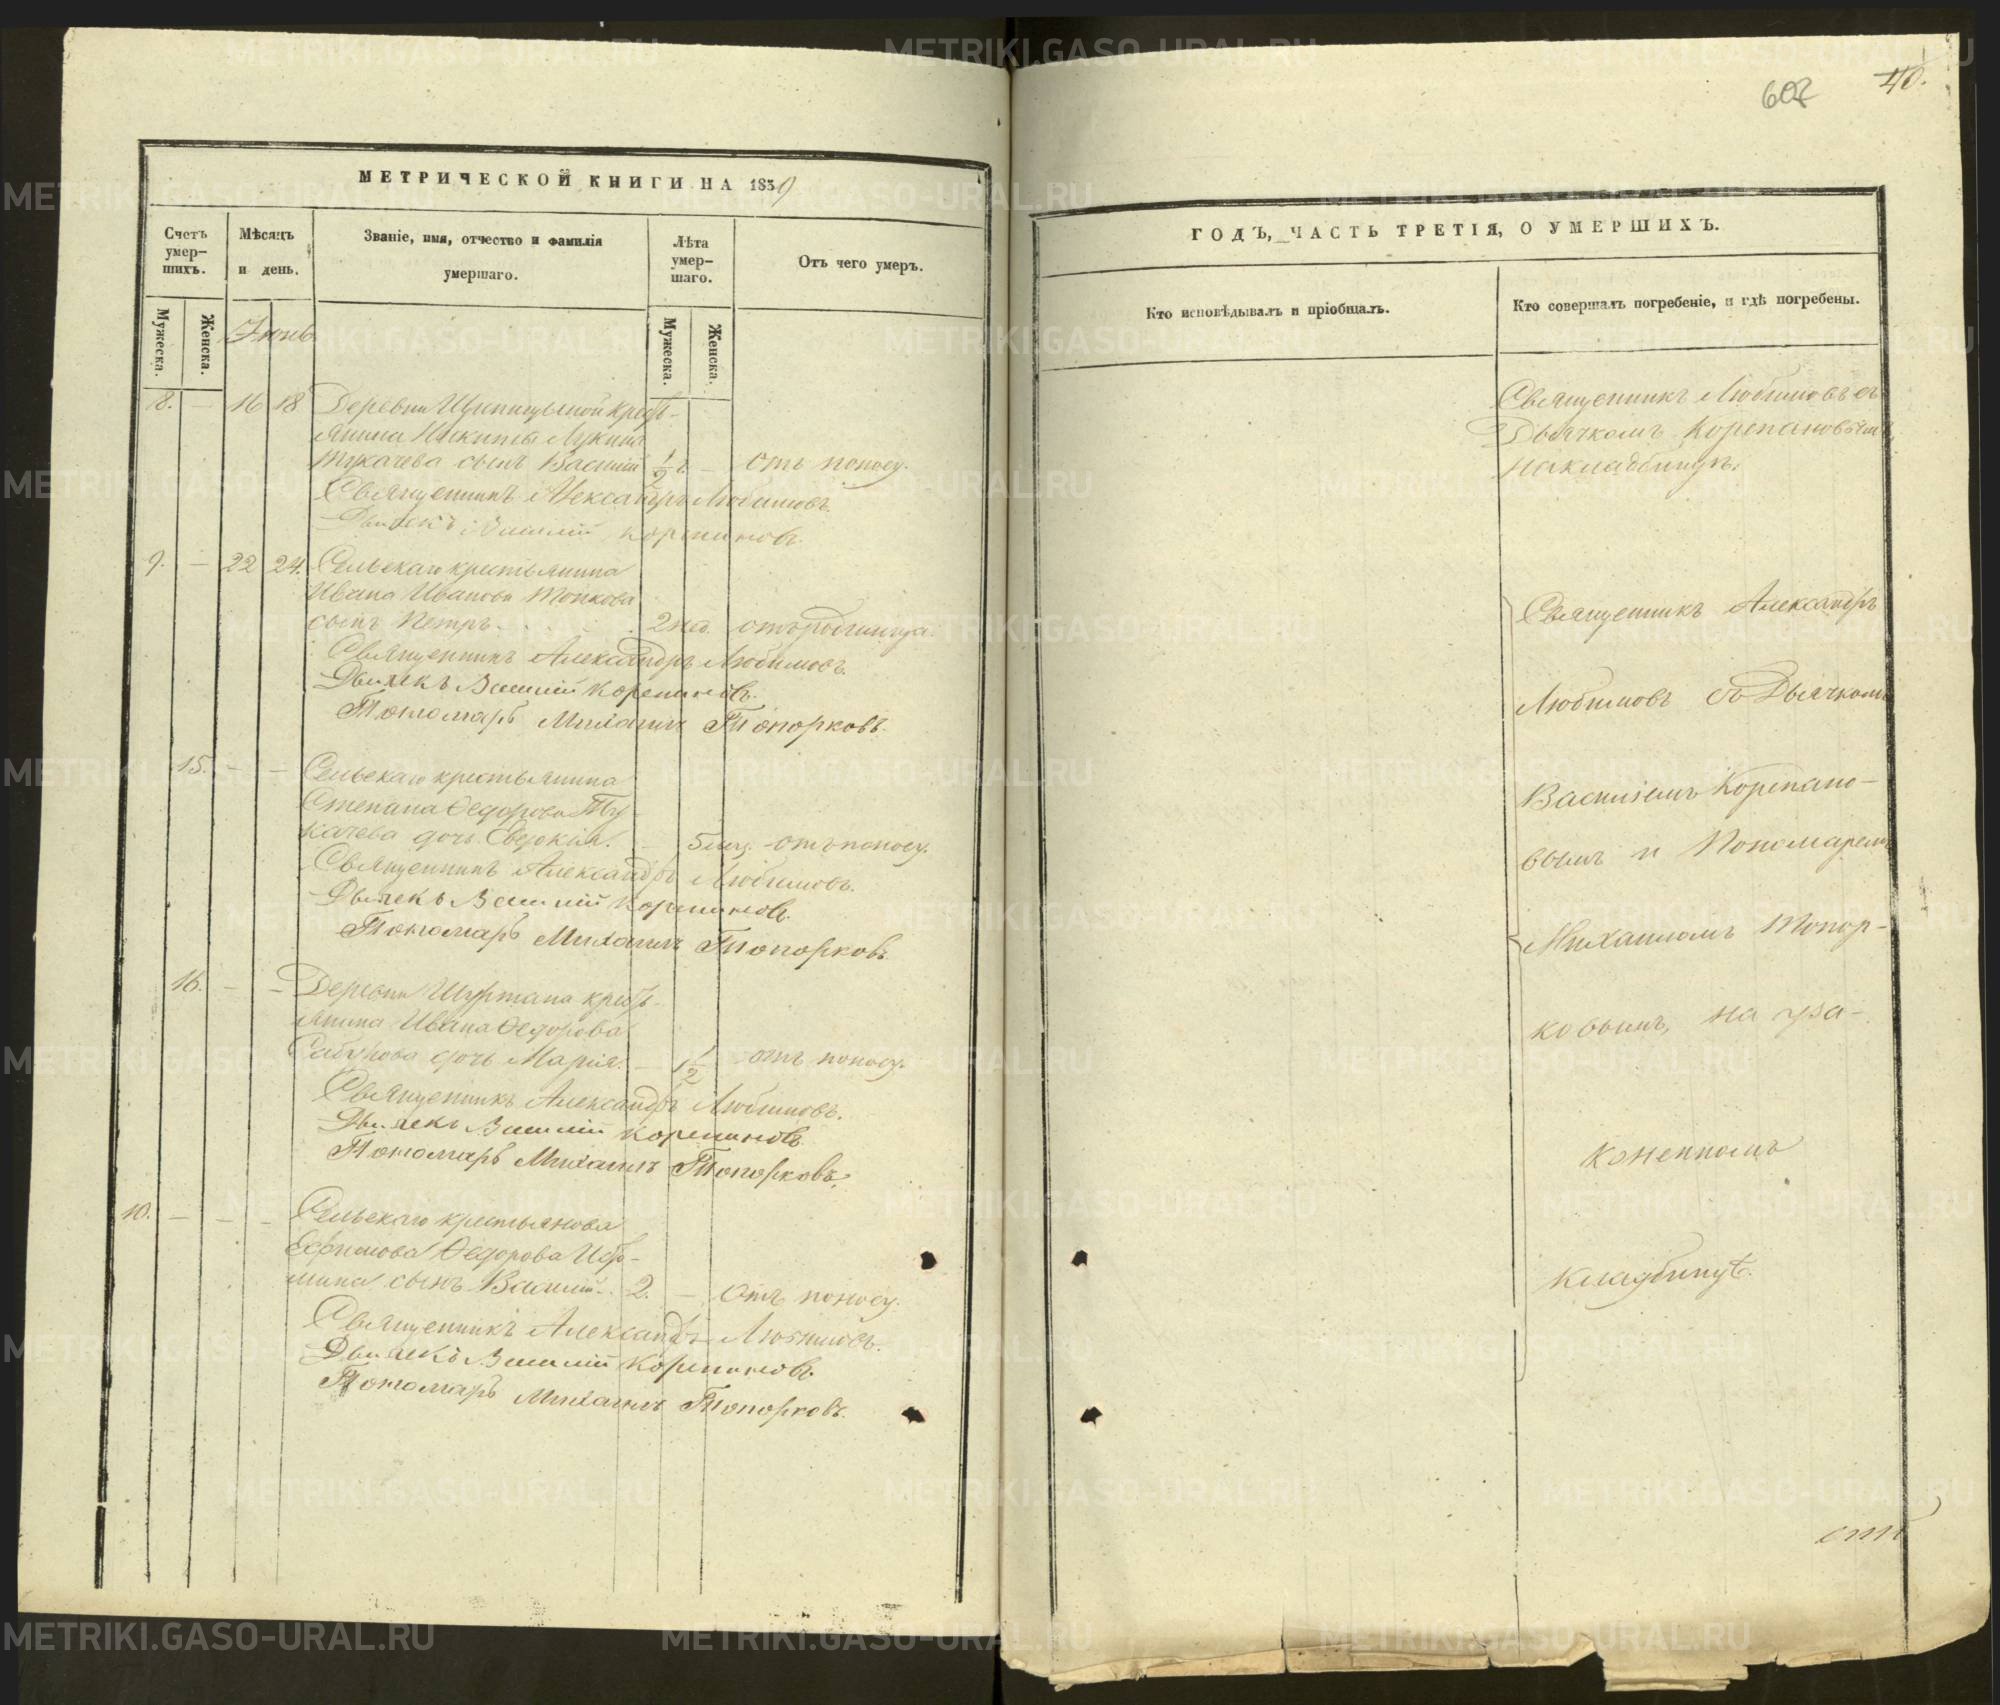 МЕТРИЧЕСКОЙ КНИГИ НА 1859
Счетъ умер-
шихъ.
Мѣсяцъ
и день.
Званіе, имя, отчество и фамилія
умершаго.
Лѣта
умер-
шаго.
Отъ чего умеръ.
Мужеска.
Женска.
Іюнь
Мужеска.
Женска.
8. — 16 18 Деревни крест-
янина Никиты Лукина
Тукачева сынъ Василій ½ г. — отъ поносу.
Священникъ Александръ Любимовъ.
Дьячекъ Василій Корепановъ.
9. — 22 24. Сельскаго крестьянина
Ивана Иванова
сынъ Петръ 2 нед. отъ родимца.
Священникъ Александръ Любимовъ.
Дьячекъ Василій Корепановъ.
Пономарь Михаилъ Топорковъ.
15. — — Сельскаго крестьянина
Степана Ѳедорова Ту-
качева дочь Евдокія. — 5 мец. отъ поносу.
Священникъ Александръ Любимовъ.
Дьячекъ Василій Корепановъ.
Пономарь Михаилъ Топорковъ.
16. — — Деревни Шуртана крест-
янина Ивана Ѳедорова
дочь Марія. — 1½ отъ поносу.
Священникъ Александръ Любимовъ.
Дьячекъ Василій Корепановъ.
Пономарь Михаилъ Топорковъ.
10. — — — Сельскаго
Ефимова Ѳедорова
сынъ Василій. 2. — Отъ поносу.
Священникъ Александръ Любимовъ.
Дьячекъ Василій Корепановъ.
Пономарь Михаилъ Топорковъ.
607
40.
ГОДЪ, ЧАСТЬ ТРЕТІЯ, О УМЕРШИХЪ.
Кто исповѣдывалъ и пріобщалъ.
Кто совершалъ погребеніе, и гдѣ погребены.
Священникъ Любимовъ съ
Дьячкомъ Корепановымъ,
на кладбищѣ.
Священникъ Александръ
Любимовъ съ Дьячкомъ
Василіемъ Корепано-
вымъ и Пономаремъ
Михаиломъ Топор-
ковымъ, на ука-
коненномъ
кладбищѣ.
METRIKI.GASO-URAL.RU